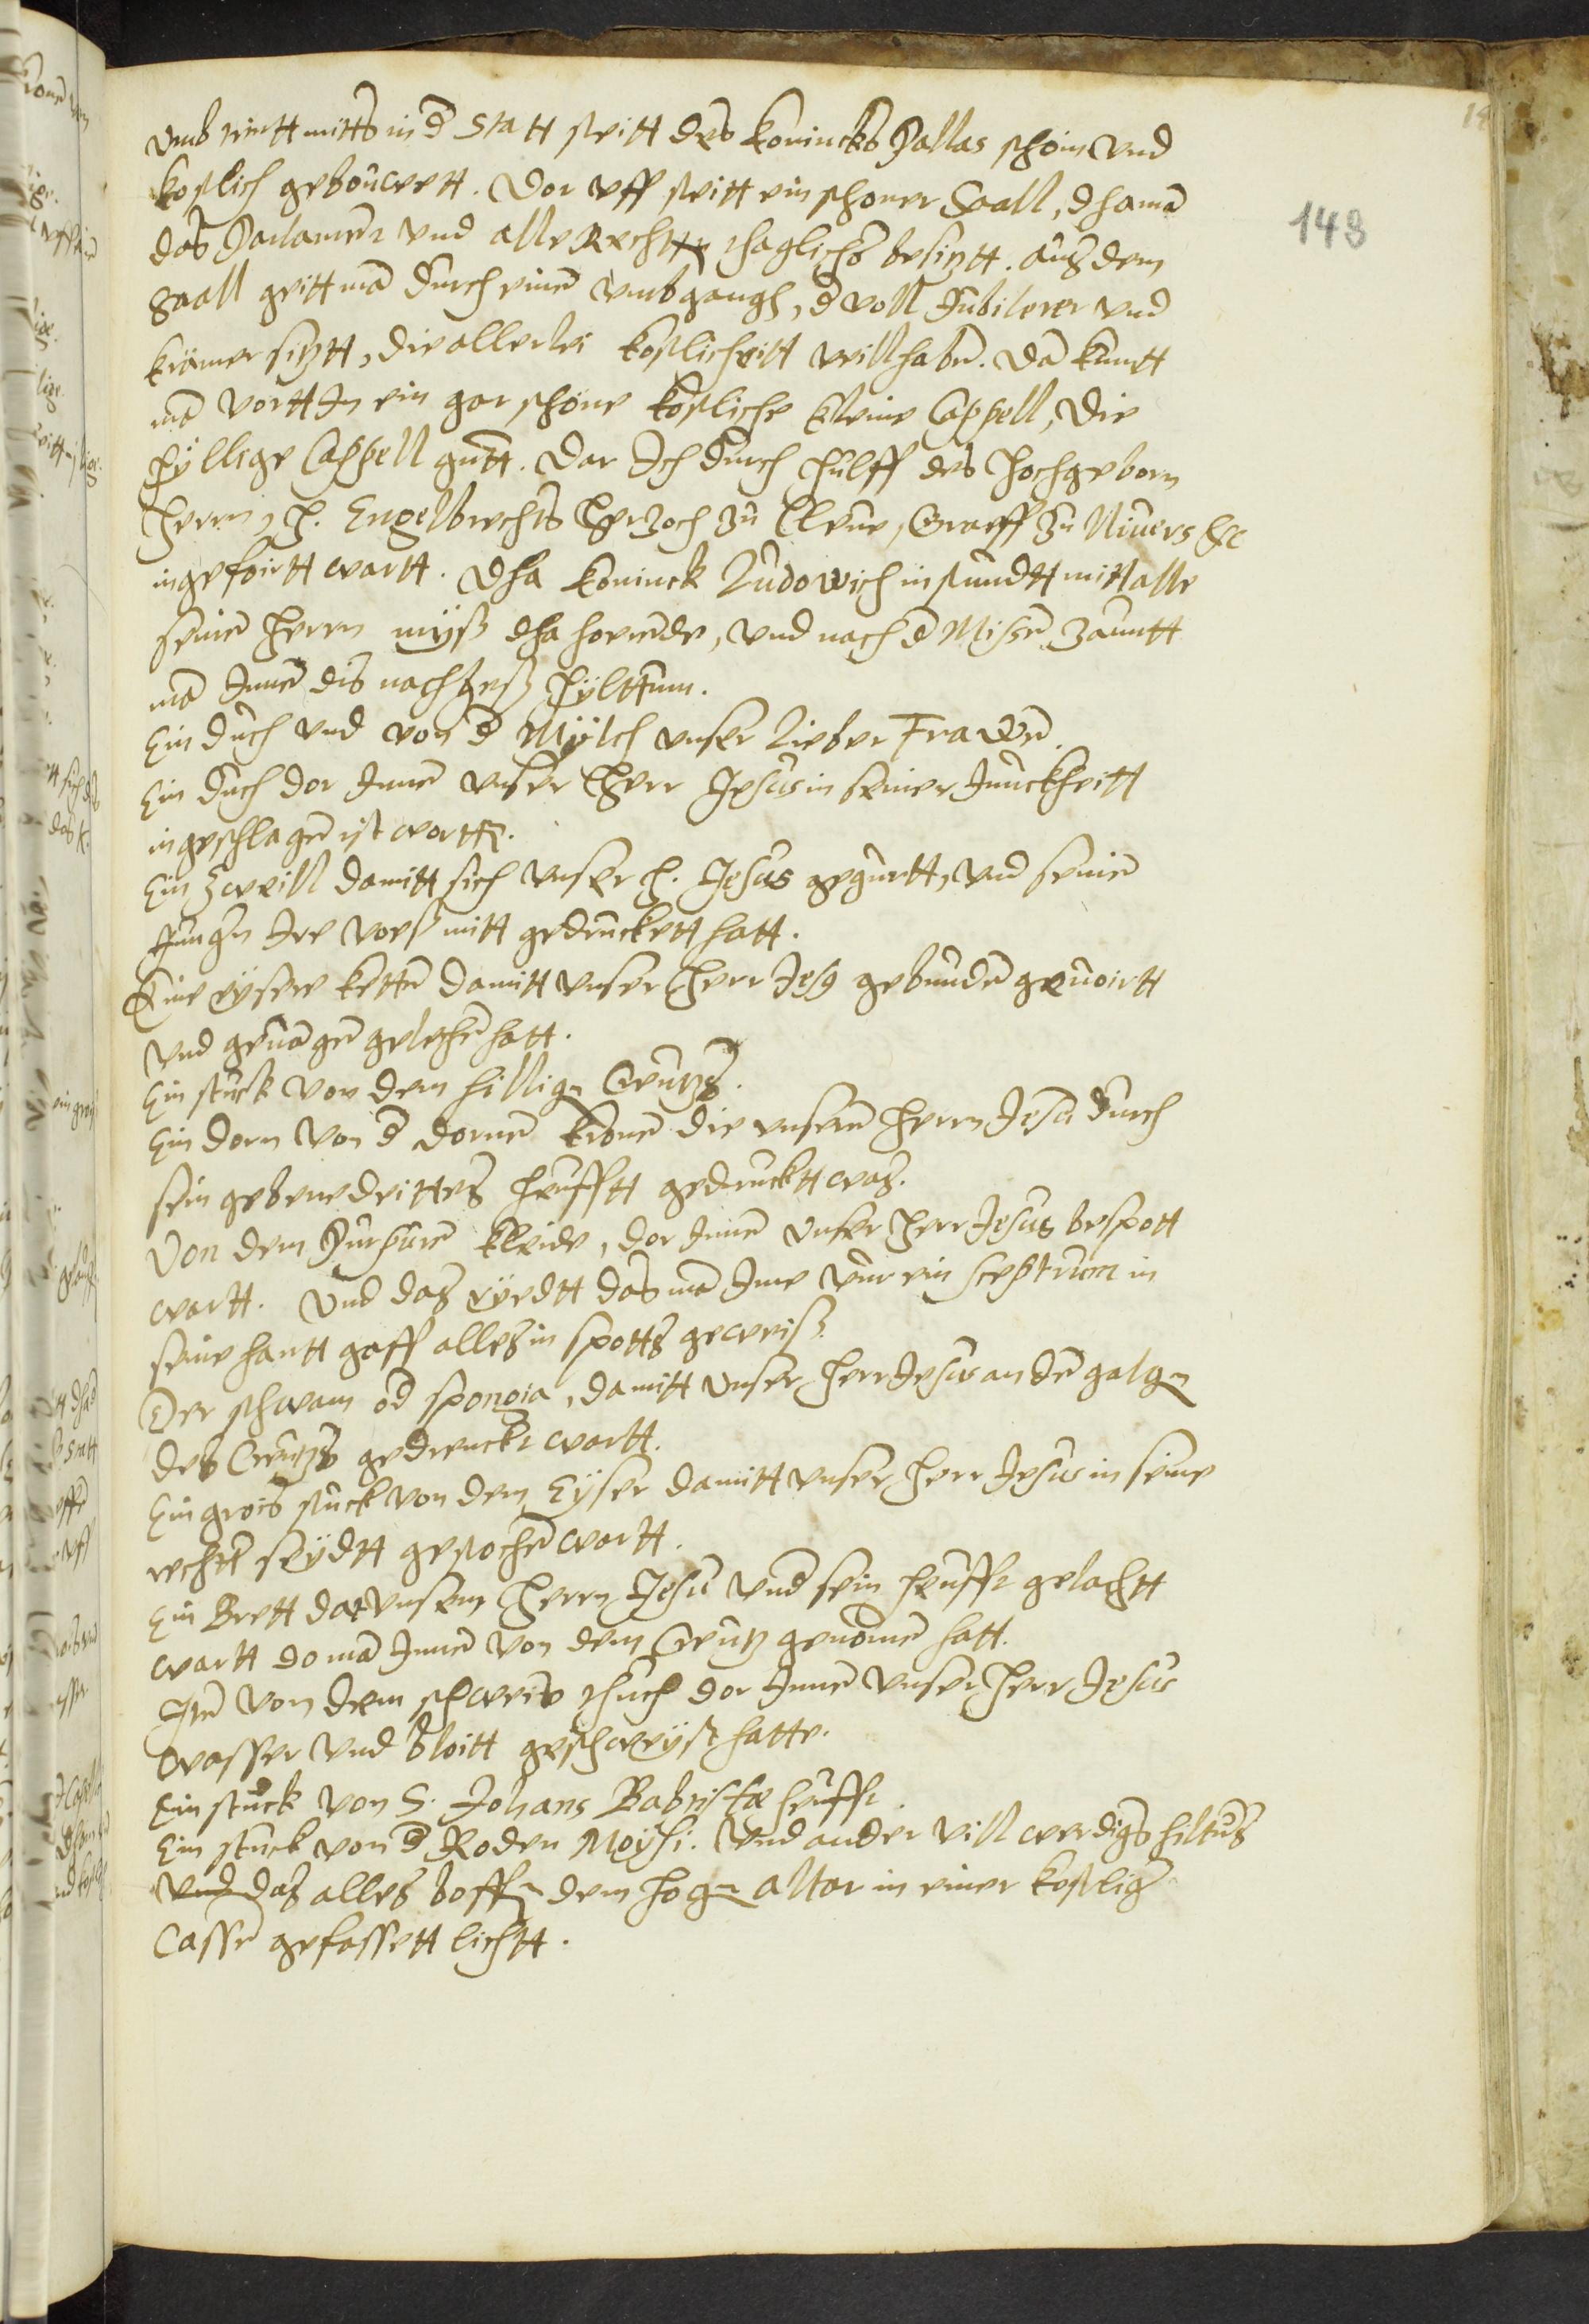 vmb trintt mitts in d Statt steitt des Konincks Pallas schoin vnd
kostlich gebouwett. Dor vff steitt ein schoner Saall, dha ma
das Parlament vnd alle Rechtten thaglichs besitzt. Aus dem
Saall geitt ma durch einen vmbgangh, d voll Jubilerer vnd
krämer sitzt, die allerlei kostlicheitt veill haben. Da kumtt
ma vortt In ein gar schone kostliche kleine Cappell, die
hyllige Cappell gnt. Dar Ich durch hulff des hochgeborn
herrn, H. Engelbrechts Hertzoch zu Cleue, Graeff zu Niuers etc
ingefoirtt wartt. Dha Koninck Ludowich in stundtt mitt alle
seinen herrn myss dha horende, vnd nach d Missen zaumtt
ma Innen dis nachgess hylttum.
Ein duch vnd von d Mylch vnser Lieber Frawen.
Ein duch dor Innen vnser Herr Jesus in seiner Junckheitt
ingeschlagen ist wortten.
Ein zweill damitt sich vnser H. Jesus gegurtt, vnd seinen
Jungern Ire voess mitt gedruckett hatt.
Eine ysere ketten damitt vnser Herr Jesus gebunden gevoirtt
vnd geuangen gelegen hatt.
Ein stuck von dem hilligen Creutzs.
Ein dorn von d dornen kronen die vnserm Herrn Jesu durch
sein gebenedeittes heufftt gedrucktt was.
Von dem Purpuren kleide, dor Innen vnser herr Jesus bespott
wartt. Vnd das ryedtt das ma Ime vur ein sceptrum in
seine hantt gaff alles in spotts gewiss.
Der schwam od spongia, damitt vnser Herr Jesus an den galgen
des Creutzs gedrenckt wartt.
Ein grois stuck von dem Eyser damitt vnser Herr Jesus in seine
rechtte seydtt gestochen wartt.
Ein Brett dat vnserm Herrn Jesu vnd sein heufft gelachtt
wartt do ma Innen von dem Creutz genomen hatt.
Item von dem schweis thuch dor Innen vnser Herr Jesus
wasser vnd bloitt geschweyst hatte.
Ein stuck von S. Johans Babtistæ heufft.
Ein stuck von d Roden Moysi. Vnd ander vill werdigs hiltums
vnd das alles boffen dem hogen altar in einer kostliger
Cassen gefassett lichtt.
148